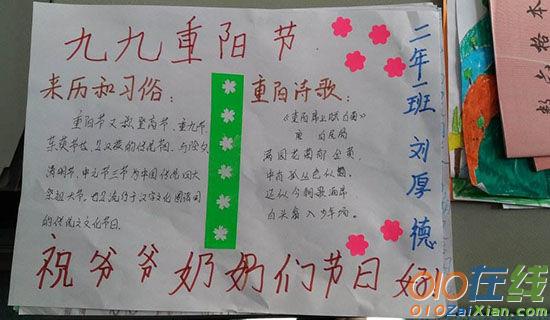 九九重阳节
来历和习俗：
重阳节又称登高节、重九节、
茱萸节也是汉族的传统节日，与除夕、
清明节、中元节三节为中国传统四大
祭祖大节。也是流行于汉字文化圈诸国
的传统文化节日。
重阳诗歌：
满园花菊郁金黄，
中有孤丛色似霜。
还似今朝歌酒席
白头翁入少年场。
二年一班 刘厚德
祝爷爷奶奶们节日好
数学格本
010在线
010ZaiXian.com